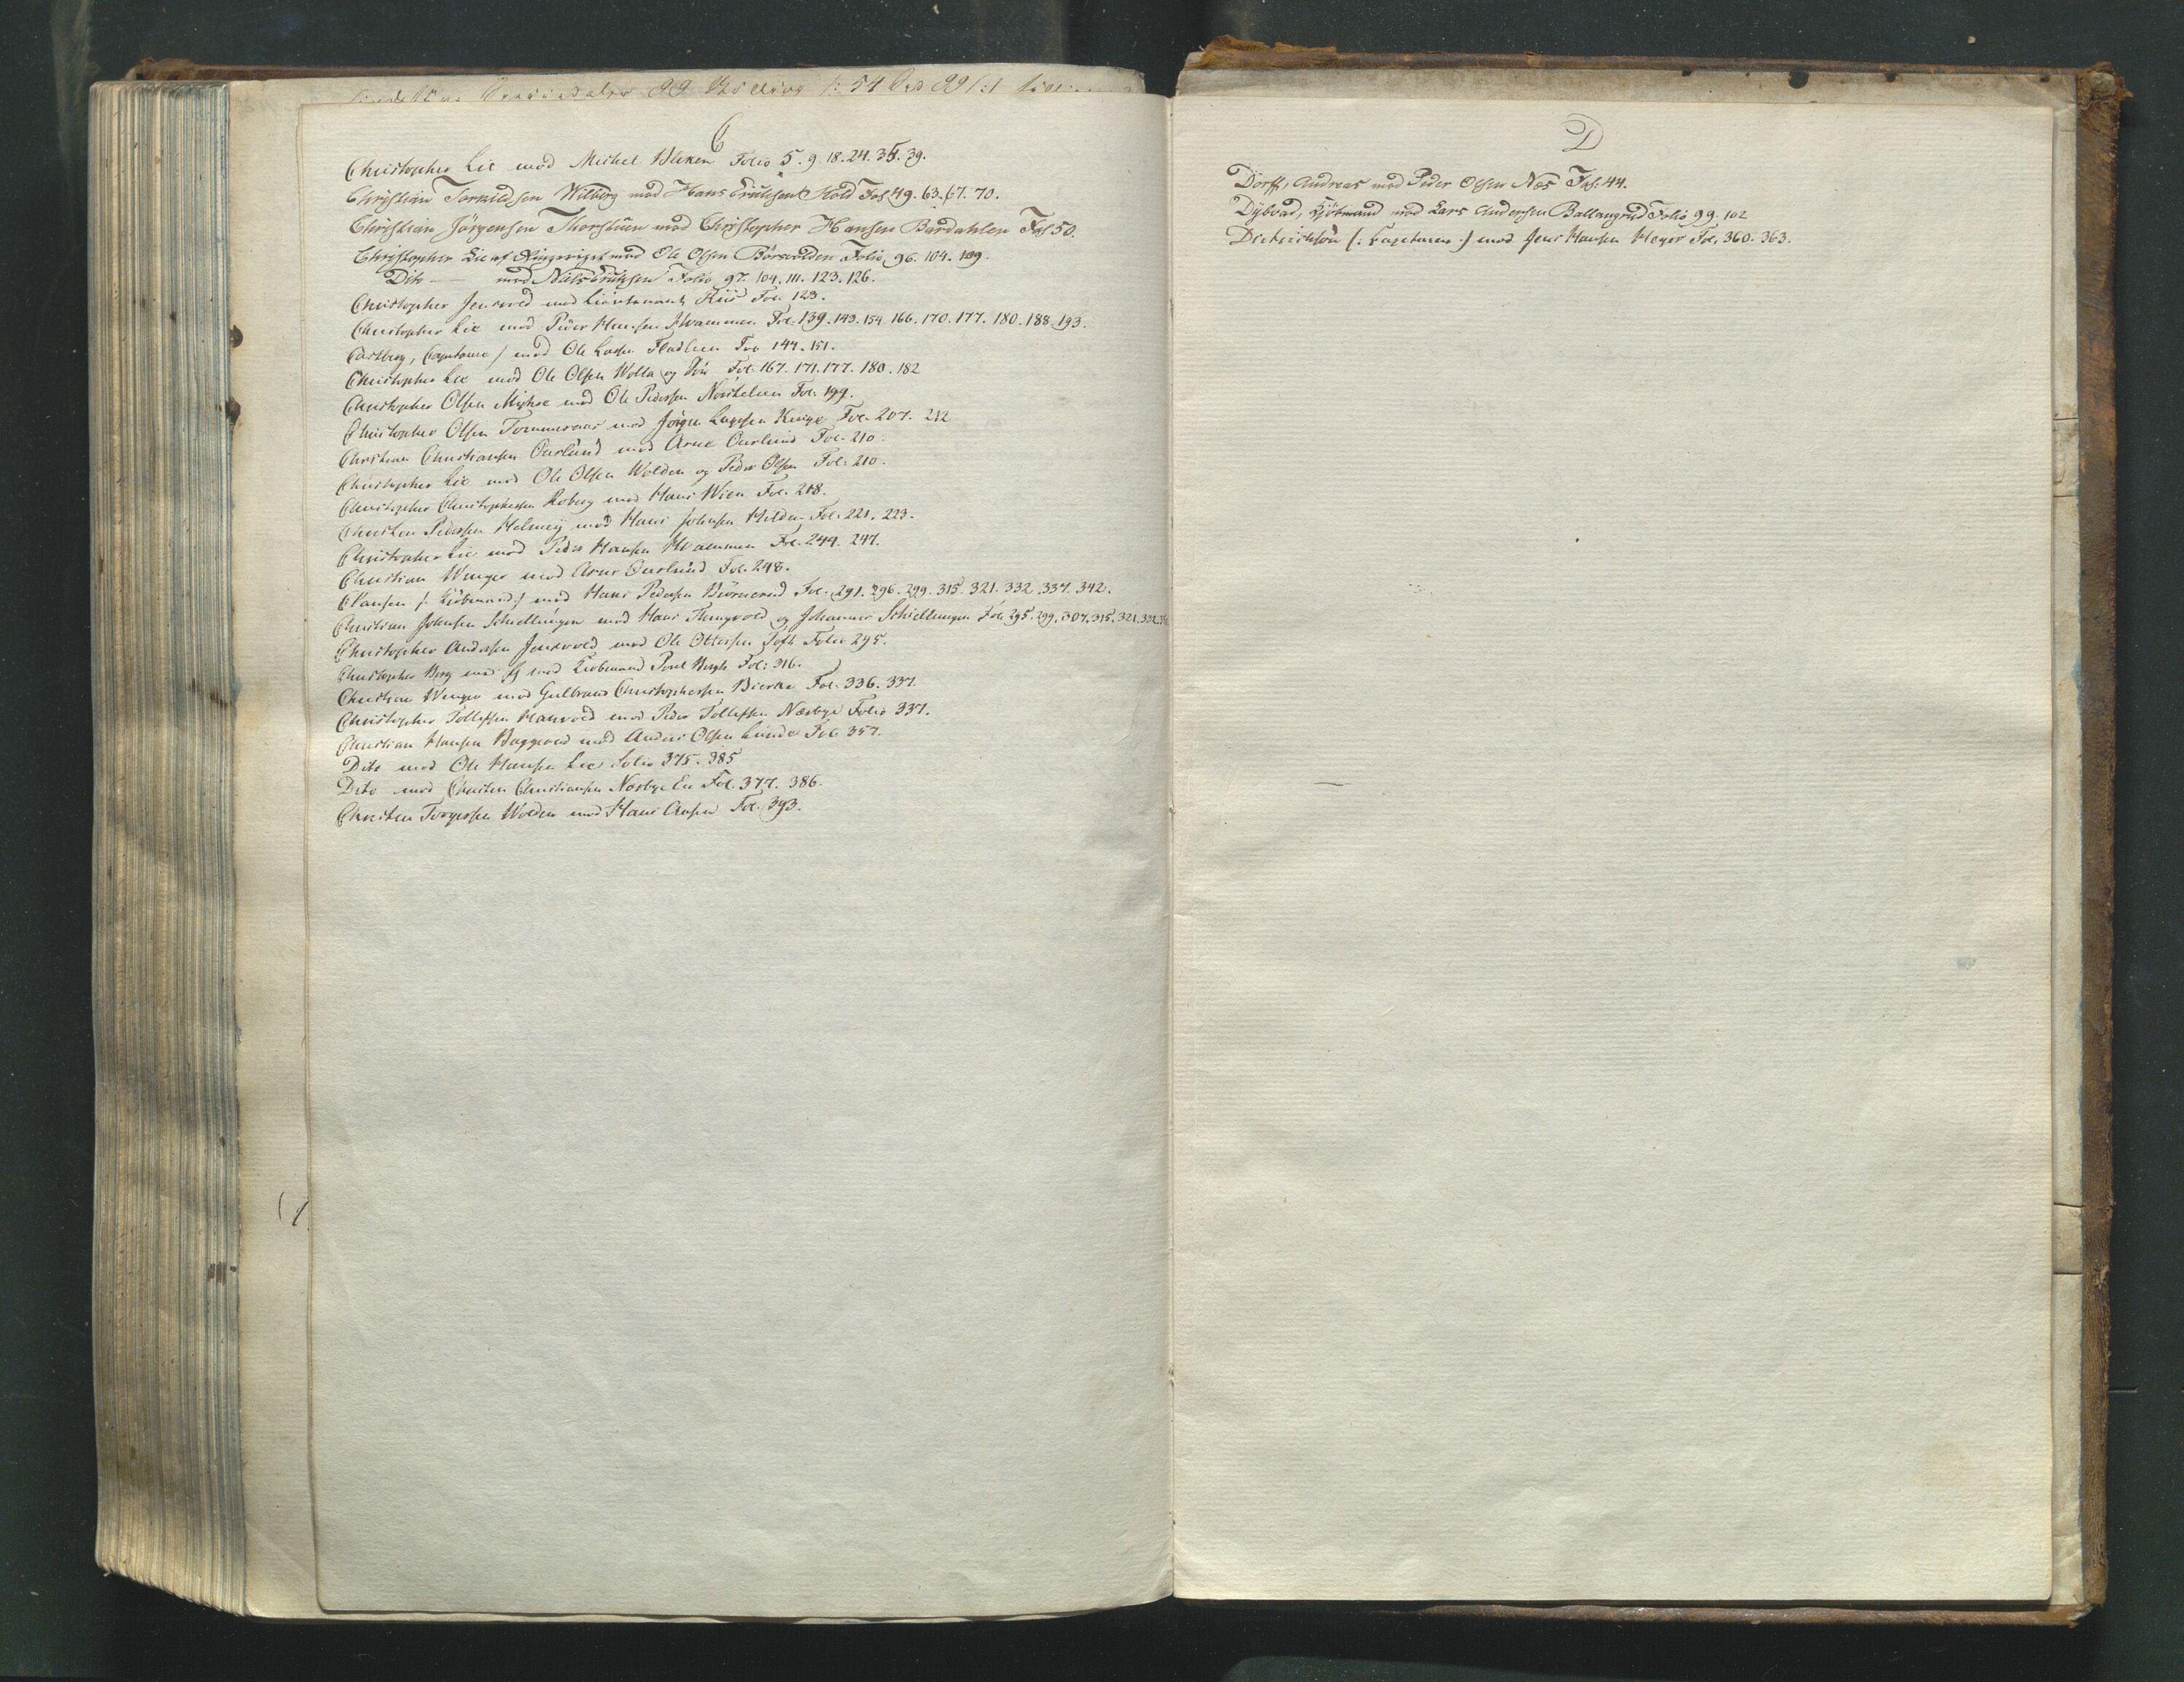 C
Christopher Lie mod Michel Bleken Folio 5. 9 18. 24. 35. 39.
Christian Torkildsen Wilberg mod Hans Erichsen Hold Fol 49. 63. 67. 70.
Christian Jörgensen Thorstuen mod Christopher Hansen Bårdahlen Fol 50.
Christopher Lie af Ringeriget mod Ole Olsen Börsvolden Folio 96. 104. 109.
Dito — mod Niels Erichsen Folio 97. 104. 111. 123. 126.
Christopher Jensvold mod Lieutenant Riis Fol. 123.
Christopher Lie mod Peder Hansen Hvammen Fol. 139. 143. 154. 166. 170. 177. 180. 188. 193.
Capitaine /) mod Ole Larsen Fol 144. 151.
Christopher Lie mod Ole Olsen Wolla og Sön Fol. 167. 171. 177. 180. 182
Christopher Olsen Myhre mod Ole Pedersen Fol. 199.
Christopher Olsen Tommeraas mod Jörgen Larssen Kinge Fol. 207. 212
Christian Christiansen Ourlund mod Arne Ourlund Fol. 210.
Christopher Lie mod Ole Olsen Wolden og Peder Olsen Fol. 210.
Christopher Christophersen Hoberg mod Hans Wien Fol. 218.
Christen Pedersen Helmey mod Hans Johnsen Hilden Fol. 221. 223.
Christopher Lie mod Peder Hansen Hvammen Fol. 244. 247.
Christian Winger mod Arne Ourlund Fol. 248.
Clausen /: Kiöbmand :/ mod Hans Pedersen Fol. 291. 296. 299. 315. 321. 332. 337. 342.
Christian Johnsen Schiellungen mod Hans Tingvold og Johannes Schiellungen Fol. 295. 299. 307. 315. 321. 332.
Christopher Andersen Jensvold mod Ole Ottersen Toft Folio 295.
Christopher Berg mod Kiöbmand Poul Bergh Fol: 316.
Christian Winger mod Gulbrand Christophersen Bierke Fol. 336. 337.
Christopher Tollefsen Hanvold mod Peder Tollefsen Næsbye Folio 337.
Christian Hansen Baggevold mod Anders Olsen Lunde Fol. 357.
Dito mod Ole Hansen Lie Folio 375. 385
Dito mod Christen Christiansen Næsbye Fol. 377. 386.
Christen Torgersen Wolden mod Hans Fol. 393.
D
Dorff, Andreas mod Peder Olsen Næs Fol: 44.
Dybvad, Kjöbmand mod Lars Andersen Ballangrud Folio 99. 102
Diderichsön (: Capitainen :) mod Jens Hansen Heyer Fol. 360. 363.